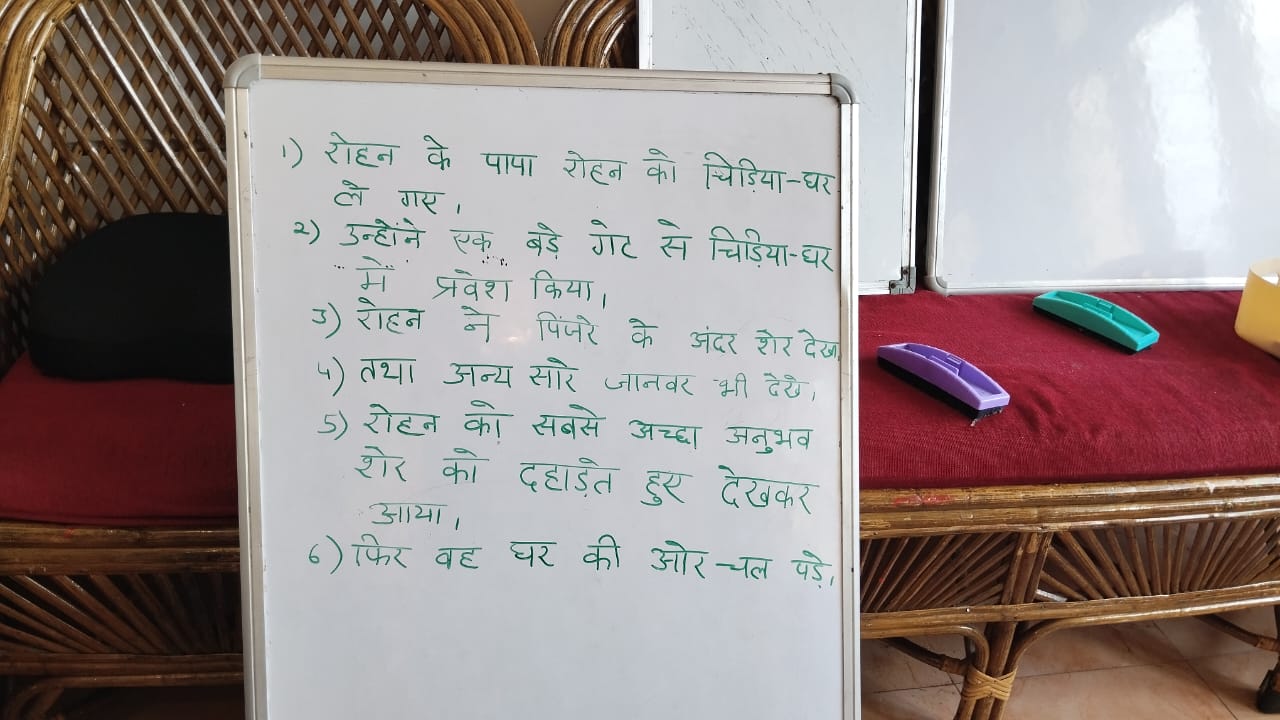 1) रोहन के पापा रोहन को चिड़िया-घर
ले गए।
2) उन्होंने एक बड़े गेट से चिड़िया-घर
में प्रवेश किया।
3) रोहन ने पिंजरे के अंदर शेर देखा
4) तथा अन्य सारे जानवर भी देखे।
5) रोहन को सबसे अच्छा अनुभव
शेर को दहाड़ते हुए देखकर
आया।
6) फिर वह घर की ओर चल पड़े।